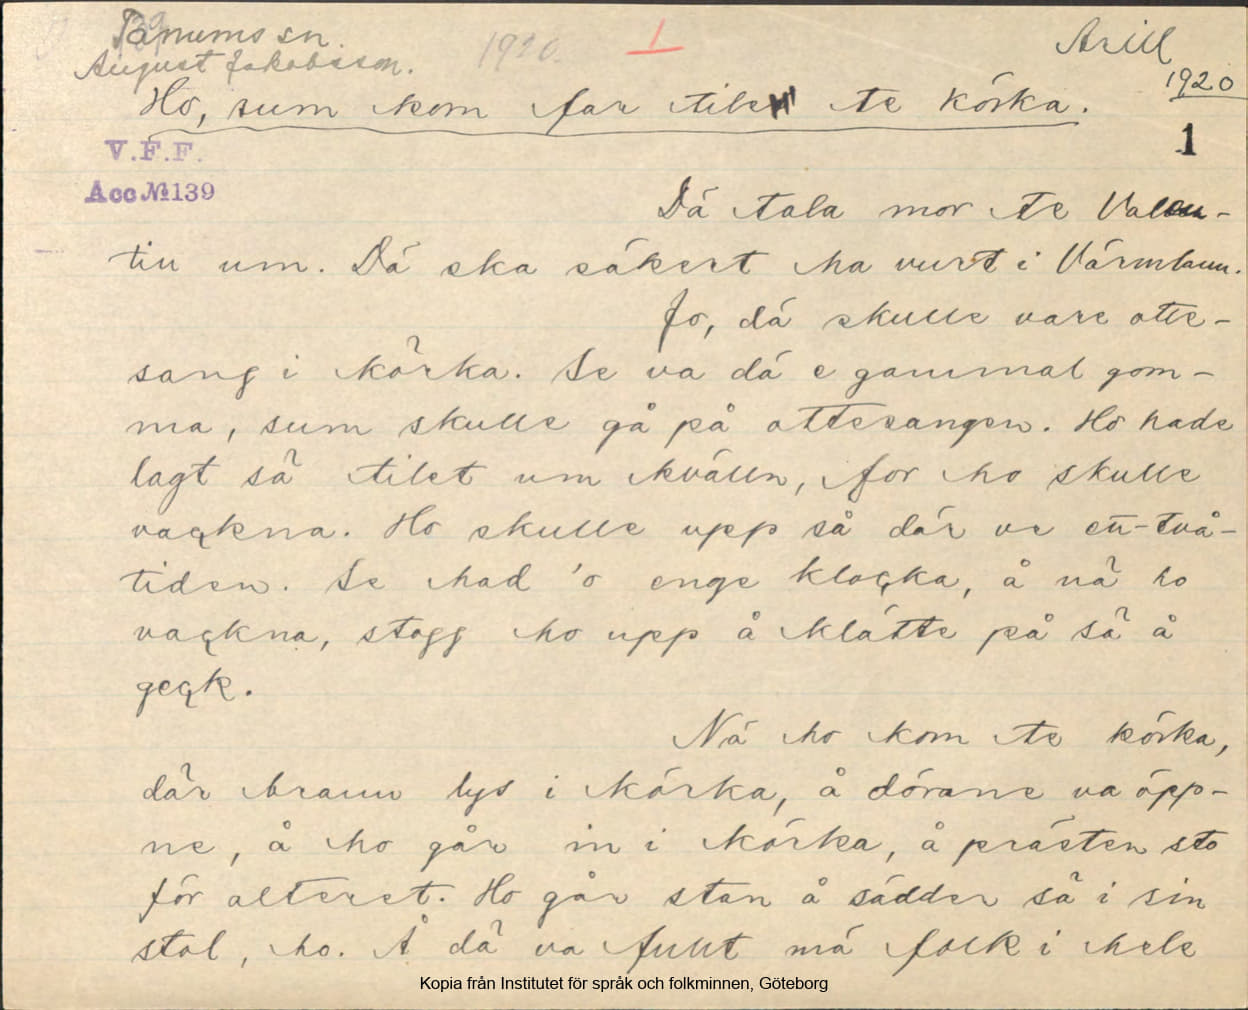 Tanums sn.
August Jakobsson.
1920.
1
Arill
1920
Ho, sum kom far tilet te körka.
1
V.F.F.
Acc № 139
Dä tala mor te Valen-
tin um. Dä ska säkert ha vurt i Värmlann.
Jo, dä skulle vare otte-
sang i körka. Se va dä e gammal gom-
ma, sum skulle gå på ottesangen. Ho hade
lagt sä tilet um kvälln, for ho skulle
vaqkna. Ho skulle upp så där ve en-två-
tiden. Se had 'o enge kloqka, å nä ho
vaqkna, stogg ho upp å klätte på sä å
geqk.
Nä ho kom te körka,
där brann lys i körka, å dörane va öpp-
ne, å ho går in i körka, å prästen sto
för alteret. Ho går stan å sädder sä i sin
stol, ho. Å dä va fullt mä folk i hele
Kopia från Institutet för språk och folkminnen, Göteborg